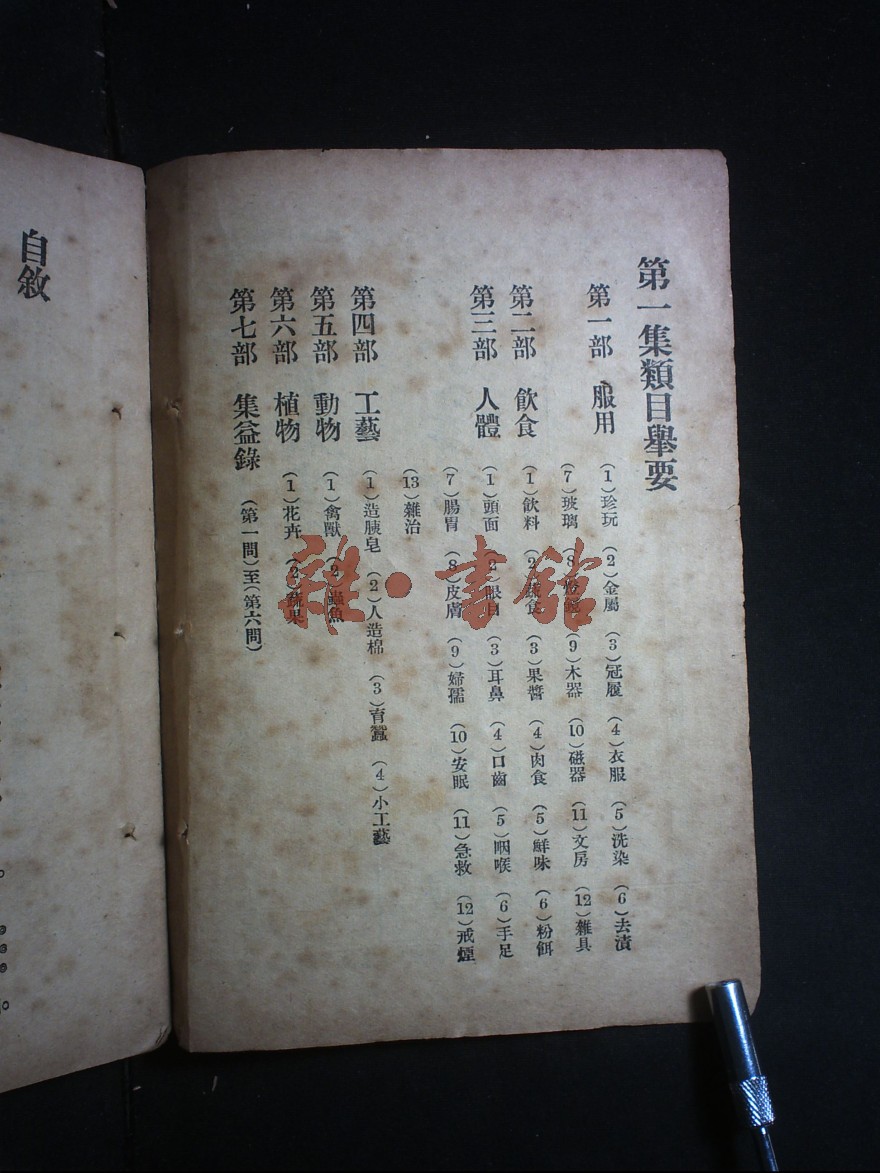 第一集類目舉要
第一部 服用 (1)珍玩 (2)金屬 (3)冠履 (4)衣服 (5)洗染 (6)去漬
(7)玻璃 (8) (9)木器 (10)磁器 (11)文房 (12)雜具
第二部 飲食 (1)飲料 (2)蔬食 (3)果醬 (4)肉食 (5)鮮味 (6)粉餌
第三部 人體 (1)頭面 (2)眼目 (3)耳鼻 (4)口齒 (5)咽喉 (6)手足
(7)腸胃 (8)皮膚 (9)婦孺 (10)安眠 (11)急救 (12)戒煙
(13)雜治
第四部 工藝 (1)造胰皂 (2)人造棉 (3)育蠶 (4)小工藝
第五部 動物 (1)禽獸 (2)蟲魚
第六部 植物 (1)花卉 (2)蔬果
第七部 集益錄 (第一問)至(第六問)
自敘
雜·書館